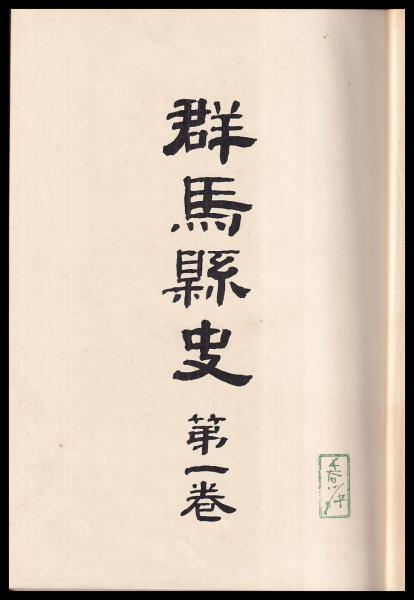 群馬縣史 第一卷